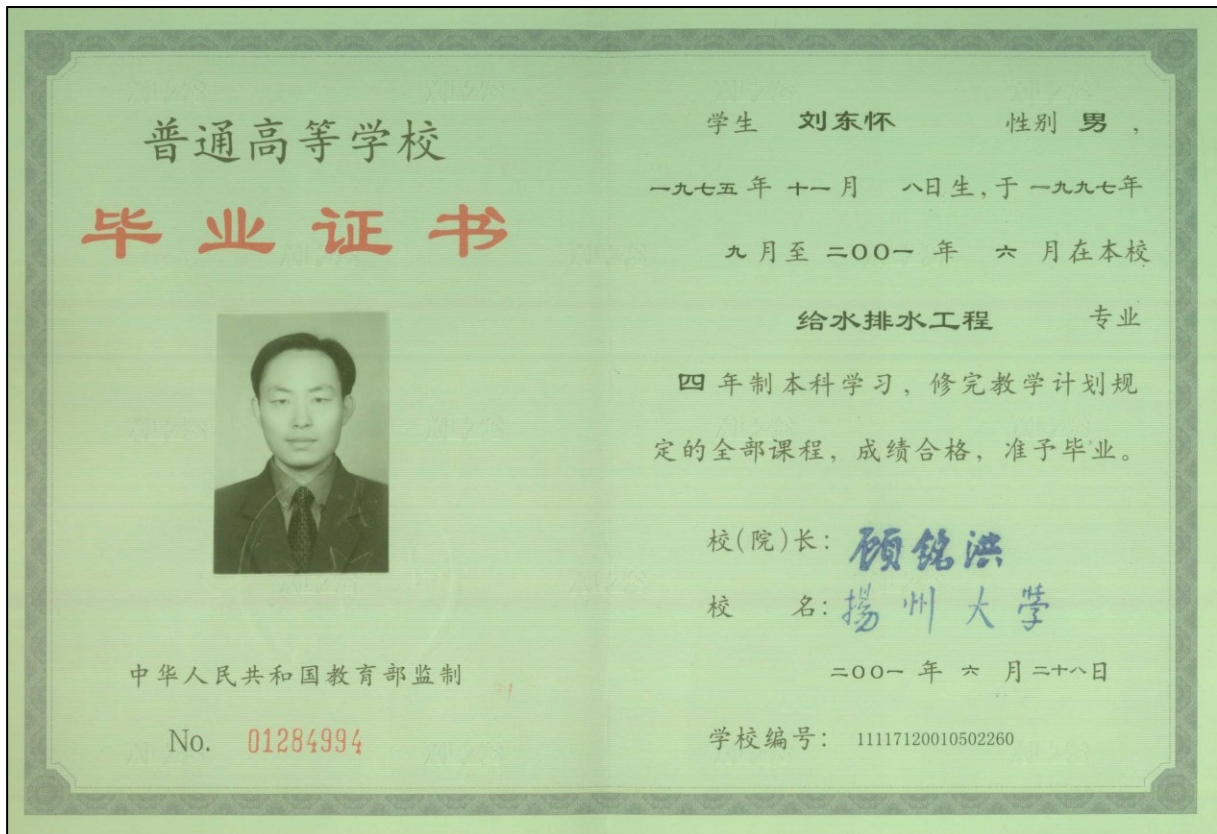 普通高等学校
毕业证书
中华人民共和国教育部监制
No. 01284994
学生 刘东怀 性别 男，
一九七五年 十一月 八日生，于 一九九七年
九月至 二〇〇一 年 六 月在本校
给水排水工程 专业
四 年制本科学习，修完教学计划规
定的全部课程，成绩合格，准予毕业。
校(院)长：顾铭洪
校 名：揚州大學
二〇〇一 年 六 月二十八日
学校编号： 11117120010502260